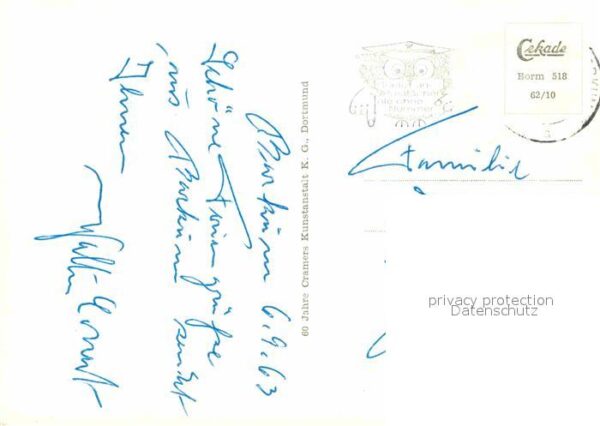 Borkum 6.9.63
Schöne Feriengrüße
aus Borkum sendet
Ihnen
Walter
60 Jahre Cramers Kunstanstalt K. G., Dortmund
Cekade
Borm 518
62/10
Familie
privacy protection
Datenschutz